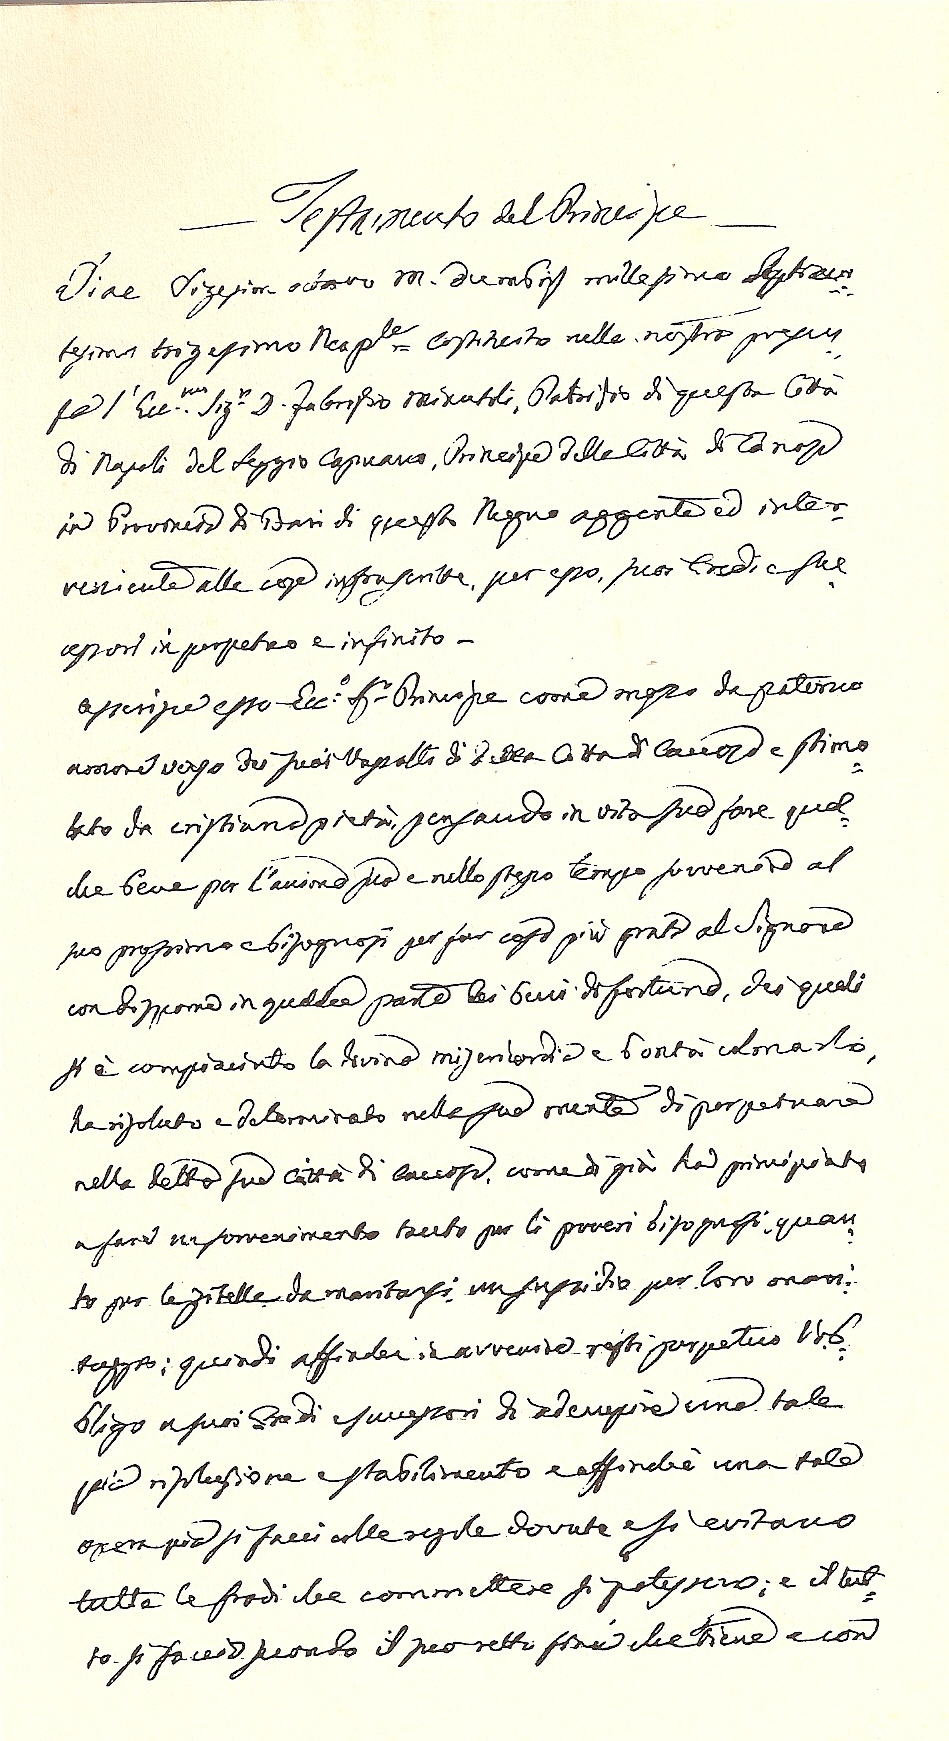 Testamento del Principe
Die Vigesimo octavo m. Decembris millesimo Septicen=
tesimo trigesimo Neap.ler= Costituito nelle nostra presen=
za l'Ecc.mo Sig.r D. Fabrizio Minutoli, Patrizio di questa Città
di Napoli del Seggio Capuano, Principe della Città di Canosa
in Provincia di Bari di questo Regno aggente ed inter=
veniente alle cose infrascritte, per esso, suoi Eredi e Suc=
cessori in perpetuo e infinito –
Asserisce esso Ecc.o Sr. Principe come mosso da paterno
amore verso dei suoi Vassalli di detta Città di Canosa e stimo=
lato da cristiana pietà, pensando in vita sua fare quel=
che bene per l'anima sua e nello stesso tempo sovvenire al
suo prossimo e bisognosi per far cosa più grata al Signore
con disporre in qualche parte dei beni di fortuna, dei quali
si è compiaciuto la divina misericordia e bontà colmarlo,
ha risoluto e determinato nella sua mente di perpetuare
nella detta sua Città di Canosa, come di già ha principiato
a fare un sovvenimento tanto per li poveri bisognosi, quan=
to per le zitelle da maritarsi un sussidio per loro mari=
taggio; quindi affinché in avvenire resti perpetuo l'ob=
bligo a suoi Eredi e successori di adempire una tale
pia risoluzione e stabilimento e affinché una tale
opera pia si facci colle regole dovute e si evitano
tutte le frodi che commettere si potessero; e il tut=
to si faccia secondo il suo retto fine che tiene e con